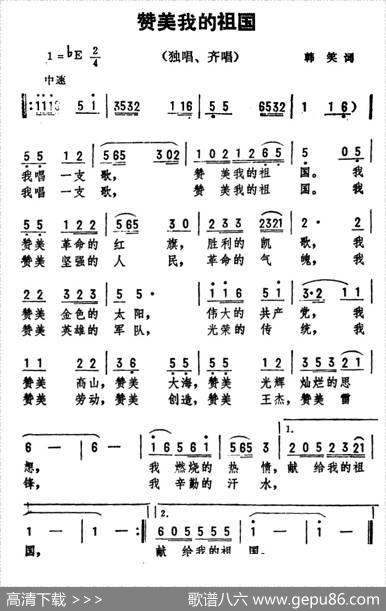 赞美我的祖国
1=♭E 2/4 (独唱、齐唱) 韩 笑 词
中速
‖:1110 5 1 | 3532 116 | 5 5 6532 | 1 16) |
5 5 1 2 | 565 302 | 1021265 | 5 05 |
我唱 一支 歌, 赞 美我的祖 国。 我
我唱 一支 歌, 赞 美我的祖 国。 我
5 5 122 | 565 30 | 233 2321 | 2· 2 |
赞美 革命的 红 旗, 胜利的 凯 歌, 我
赞美 坚强的 人 民, 革命的 气 魄, 我
22 323 | 5 5· | 116 51 | 3·2 11 |
赞美 金色的 太 阳, 伟大的 共产 党, 我
赞美 英雄的 军 队, 光荣的 传 统, 我
11 22 | 36 55 | 55 12 | 353 21 |
赞美 高山,赞美 大海,赞美 光辉 灿烂的思
赞美 劳动,赞美 创造,赞美 王杰,赞美 雷
1.
6 — | 6 — | 16561 | 565 3 | 2052321 |
想, 我 燃烧的 热 情,献 给我的祖
锋, 我 辛勤的 汗 水,
2.
1 — | 1 — :‖ 6055555 | 1 — | 1 — |
国, 献 给我的祖 国。
高清下载 >>> 歌谱八六 www.gepu86.com